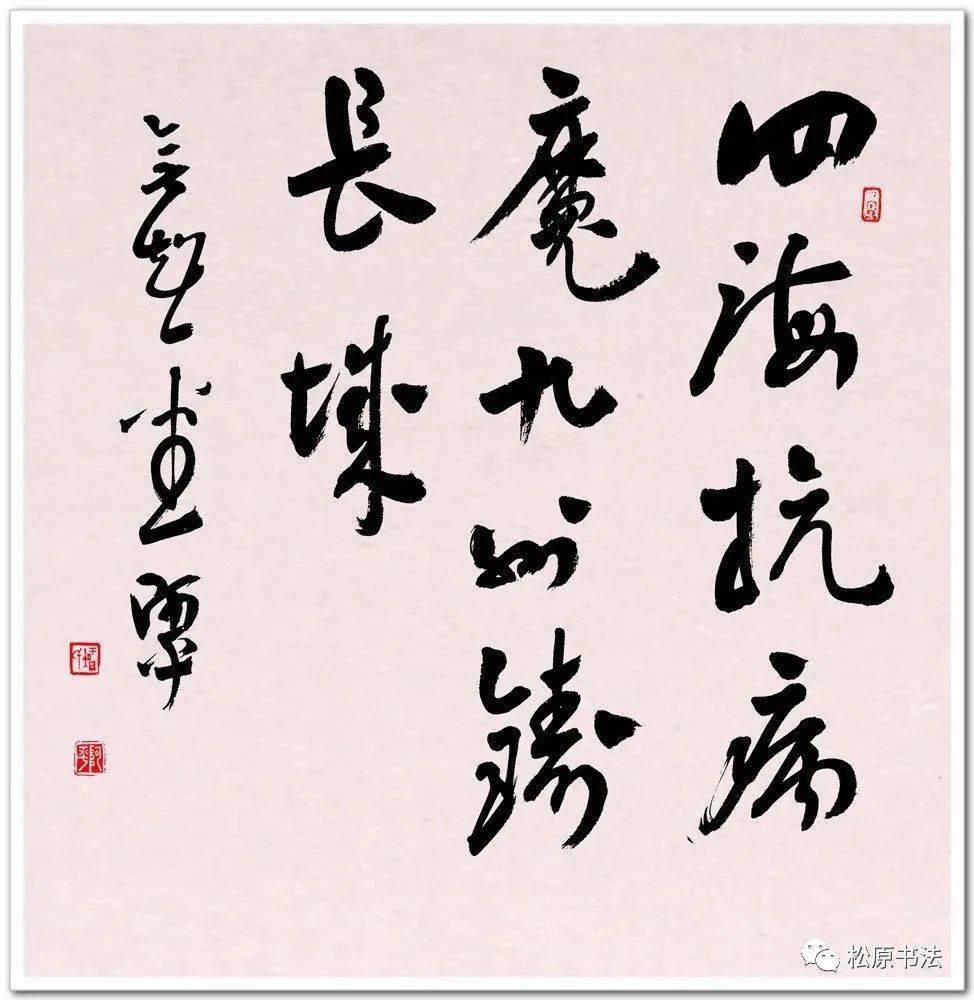 四海抗病
魔九州铸
長城
松原书法